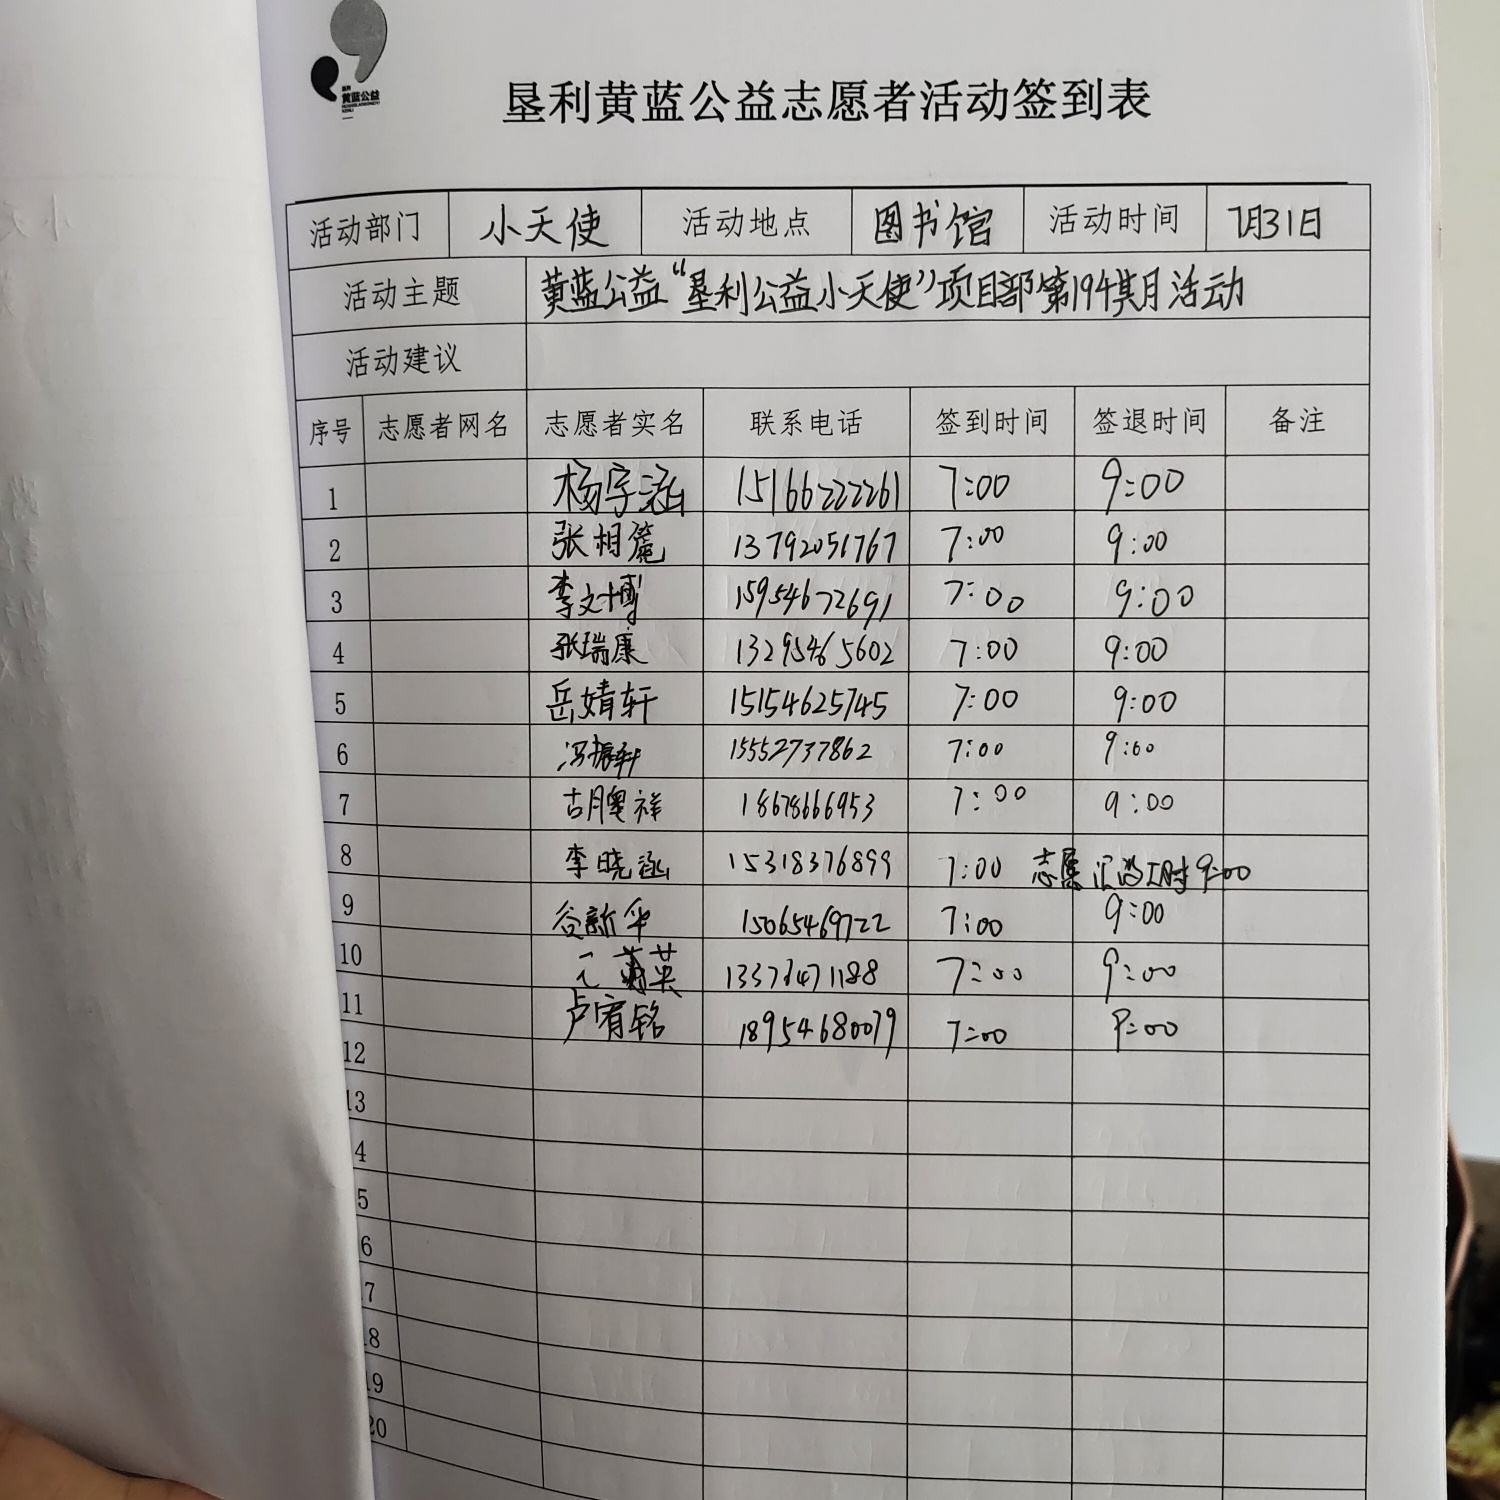 黄蓝公益
垦利黄蓝公益志愿者活动签到表
活动部门 小天使 活动地点 图书馆 活动时间 7月31日
活动主题 黄蓝公益“垦利公益小天使”项目部第194期月活动
活动建议
序号 志愿者网名 志愿者实名 联系电话 签到时间 签退时间 备注
1 杨字涵 15166222261 7:00 9:00
2 张相篦 13792051767 7:00 9:00
3 李文博 15954672691 7:00 9:00
4 张瑞康 13295465602 7:00 9:00
5 岳婧轩 15154625745 7:00 9:00
6 冯振轩 15552737862 7:00 9:00
7 古腾祥 18678666953 7:00 9:00
8 李晓涵 15318376899 7:00 志愿汇 时 9:00
9 谷新 15065469722 7:00 9:00
10 英 1188 7:00 9:00
11 卢宥铭 18954680079 7:00 9:00
12
13
4
5
6
7
18
19
20